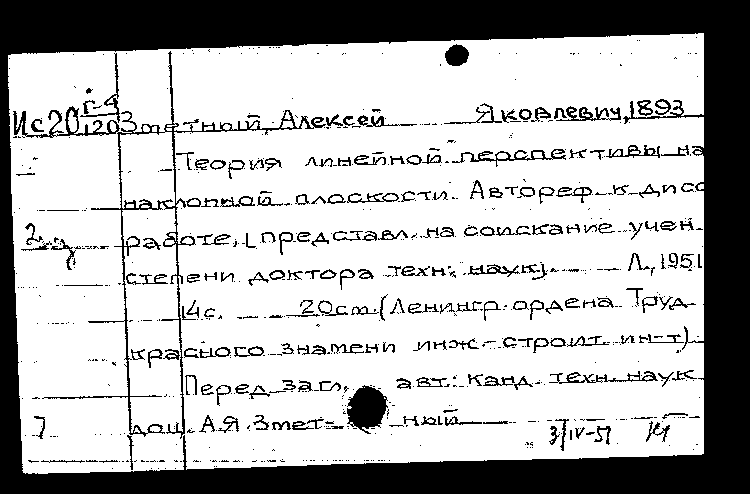 Г-4
Ис20 120 Зметный, Алексей Яковлевич, 1893
Теория линейной перспективы на
наклонной плоскости. Автореф. к дисс
работе, [представл. на соискание учен.
степени доктора техн. наук]. Л., 1951
14с. 20см. (Ленингр. ордена Труд.
красного знамени инж.-строит. ин-т)
Перед загл. авт.: канд. техн. наук
7 доц. А.Я. Змет- ный
3/IV-51